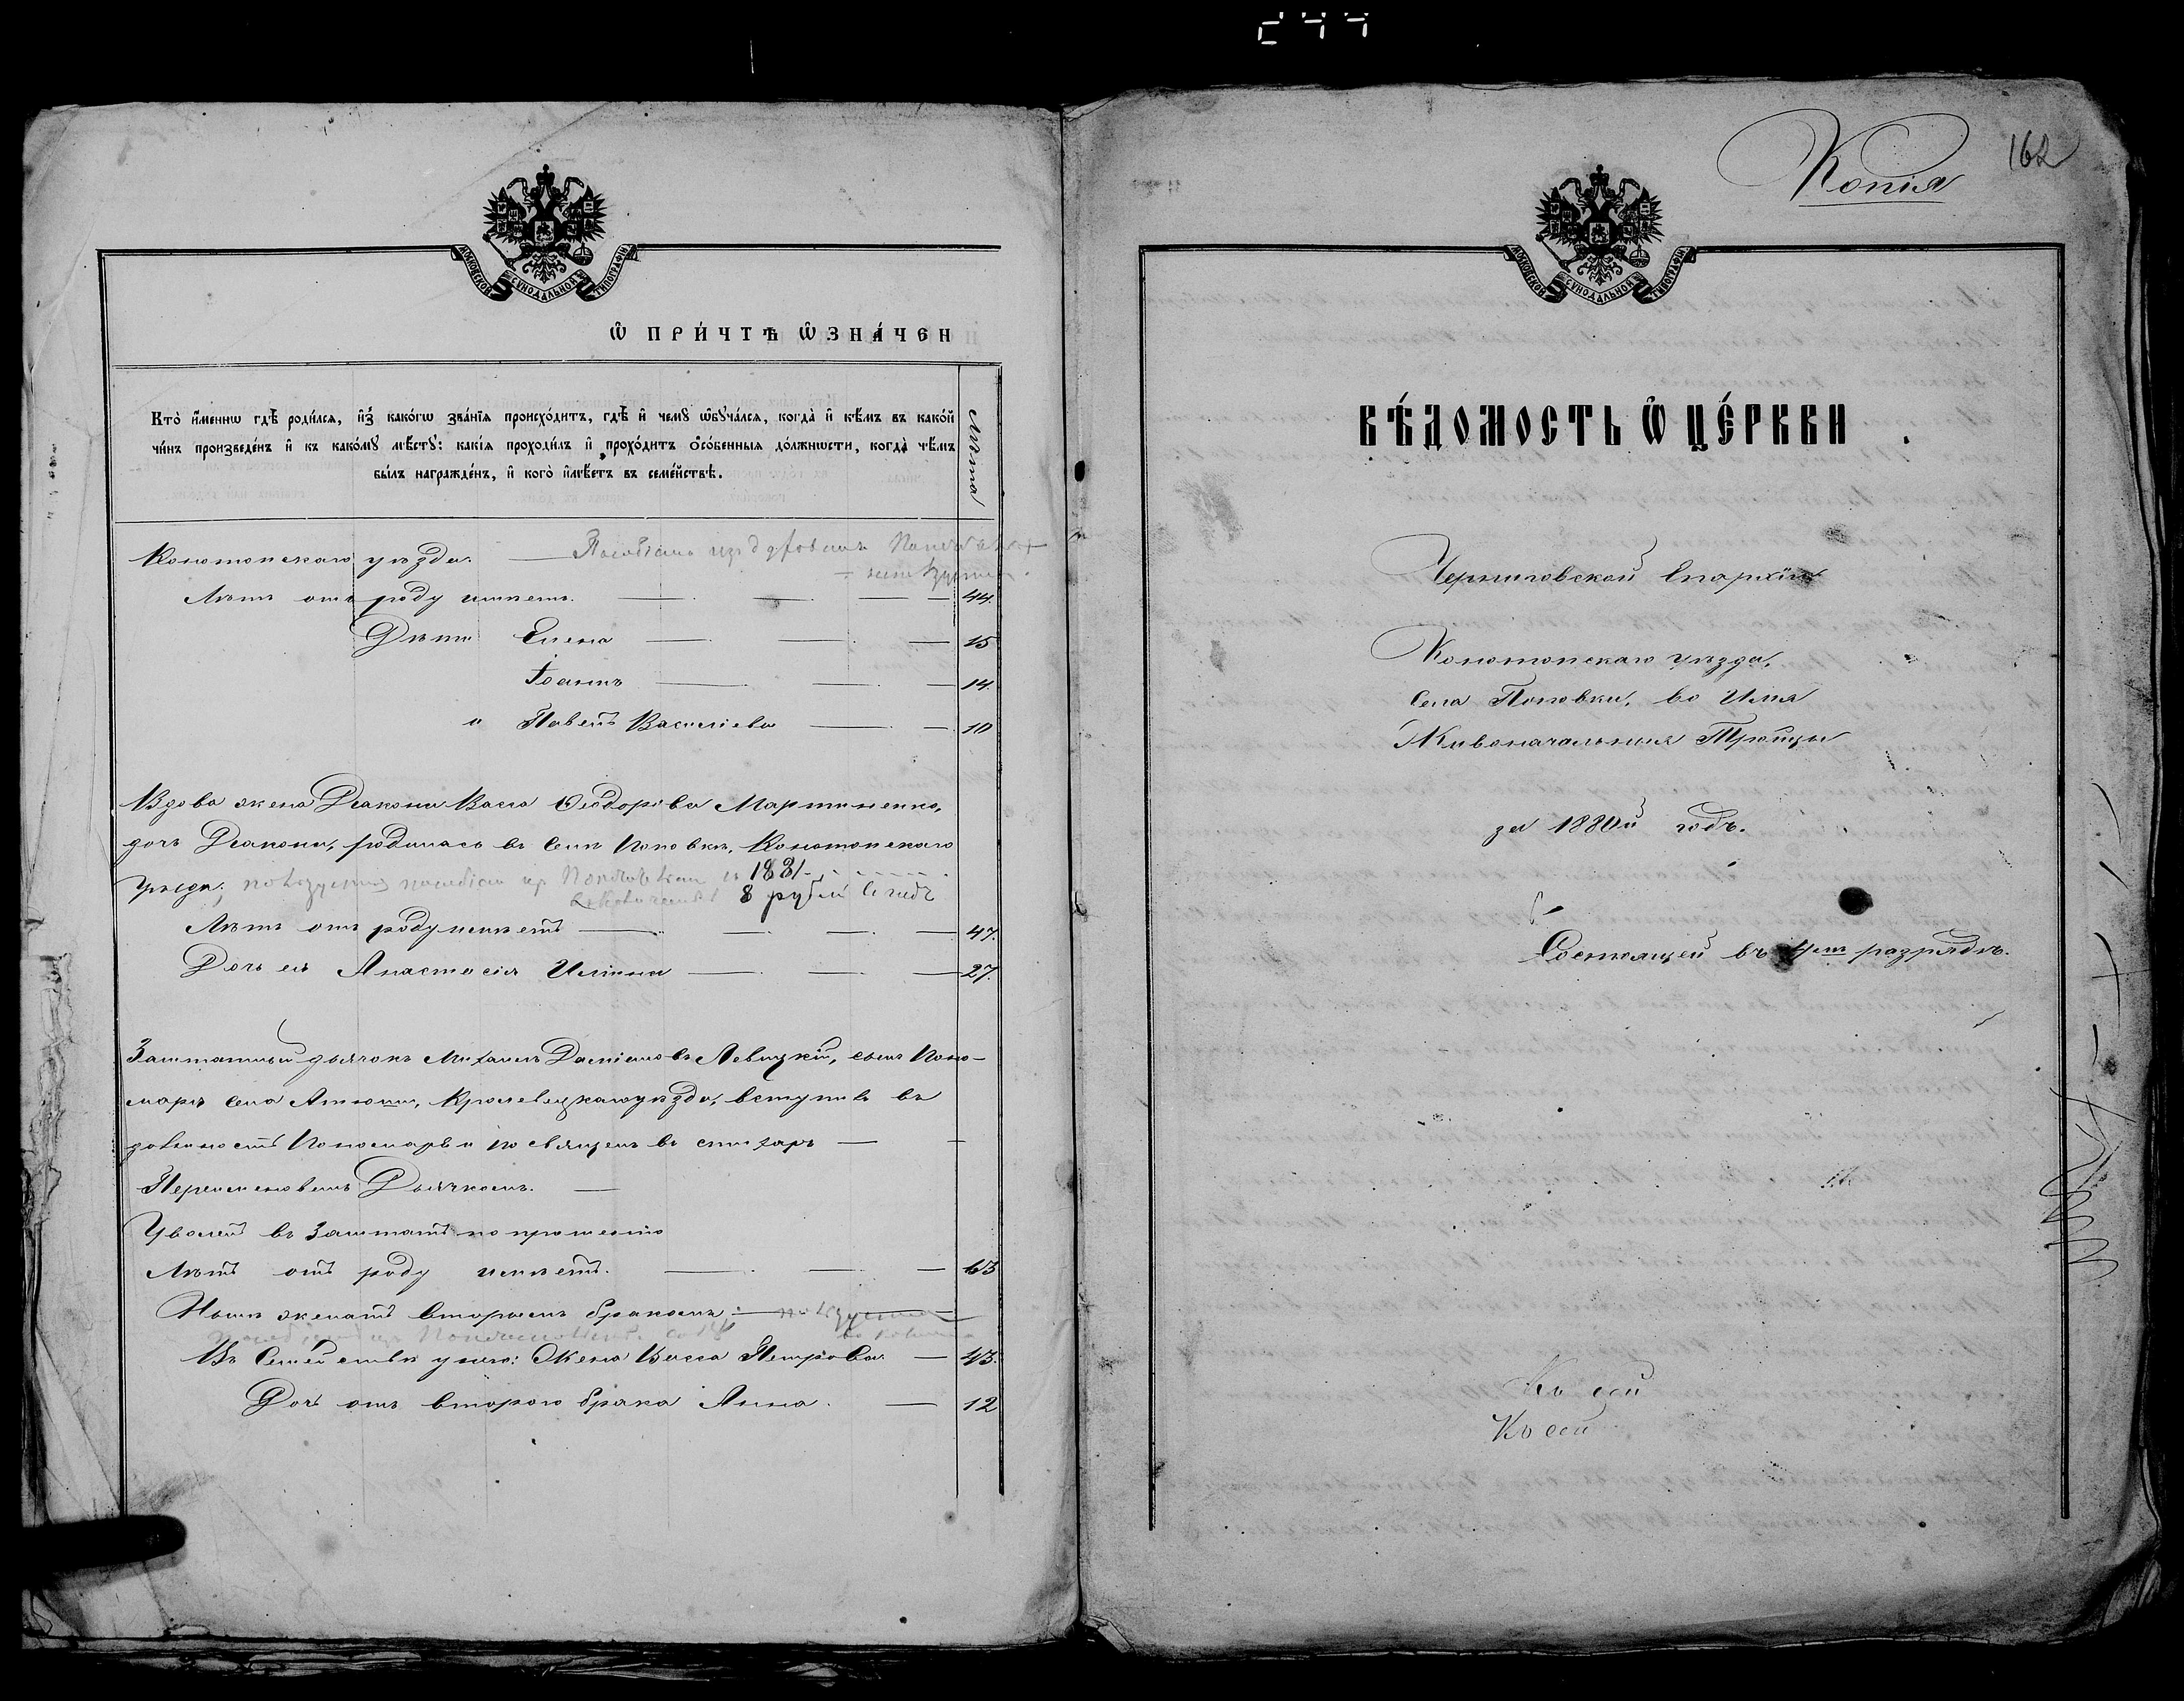 МОСКОВСКОЙ СѴНОДАЛЬНОЙ ТИПОГРАФІИ
Ѡ ПРИ́ЧТѢ ѠЗНА́ЧЕН
Кто̀ и҆́меннѡ гдѣ̀ роди́лся, и҆з̾ како́гѡ зва́нїя происхо́дитъ, гдѣ̀ и҆ чемꙋ̀ ѡ҆бꙋча́лся, когда̀ и҆ кѣ́мъ въ како́й
чи́нъ произведе́нъ и҆ къ како́мꙋ мѣ́стꙋ: какі́я проходи́лъ и҆ прохо́дитъ ѻ҆со́бенныя до́лжнѡсти, когда̀ чѣ́мъ
бы́лъ награжде́нъ, и҆ кого̀ и҆мѣ́етъ въ семе́йствѣ.
Лѣта
Конотопскаго уѣзда.
Лѣтъ отъ роду имѣетъ. 44.
Дѣти Елена 15
Іоаннъ 14.
и Павелъ Васильевы 10
Вдова жена Діакона Васса Ѳеодорова Мартыненко,
дочь Діакона, родилась въ селѣ Поповкѣ, Конотопскаго
уѣзда; 1881
8 рублей въ годъ
Лѣтъ отъ роду имѣетъ 47.
Дочь ея Анастасія Ильина 27.
Заштатный дьячокъ Михаилъ Даміановъ Левицкій, сынъ Поно-
маря села Атюши, Кролевецкаго уѣзда, вступилъ въ
должность Пономаря и посвященъ въ стихарь
Переименованъ Дьячкомъ.
Уволенъ въ Заштатъ по прошенію
Лѣтъ отъ роду имѣетъ. 63
Нынѣ женатъ вторымъ бракомъ;
Въ Семействѣ у него: Жена Васса Петрова 43.
Дочь отъ второго брака Анна. 12
Копія
162
МОСКОВСКОЙ СѴНОДАЛЬНОЙ ТИПОГРАФІИ
ВѢ́ДОМОСТЬ Ѡ҆ ЦЕ́РКВИ
Черниговской Епархіи
Конотопскаго уѣзда,
села Поповки, во Имя
Живоначальныя Тройцы
за 1880й годъ.
Состоящей въ 4мъ разрядѣ.
Къ сей
Къ сей